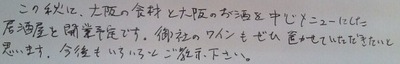 この秋に、大阪の食材と大阪のお酒を中心メニューにした
居酒屋を開業予定です。御社のワインもぜひ置かせていただきたいと
思います。今後もいろいろとご教示下さい。